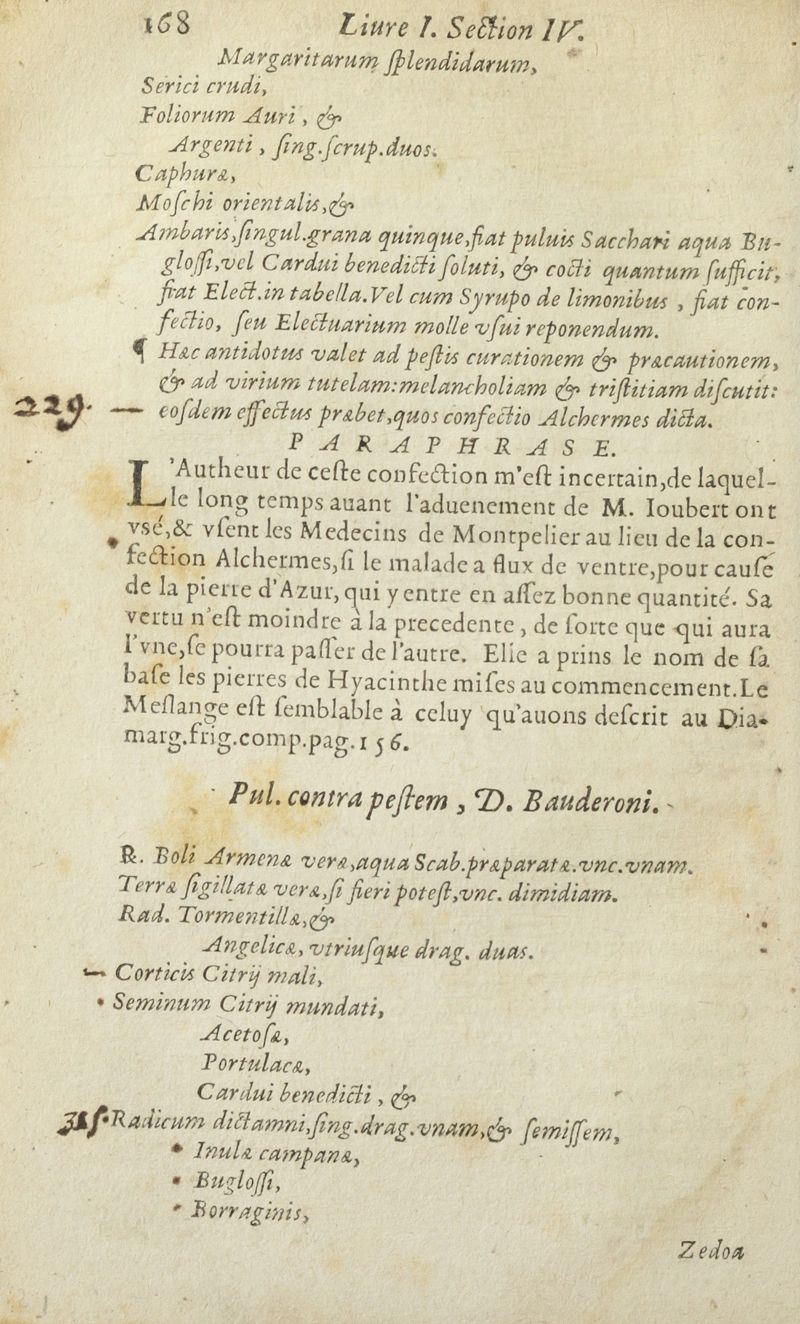 168 Liure I. Section IV.
Margaritarum ſplendidarum,
Serici crudi,
Foliorum Auri, &
Argenti, ſing.ſcrup.duos.
Caphuræ,
Moſchi orientalis,&
Ambaris,ſingul.grana quinque,fiat puluis Sacchari aqua Bu-
gloſſi,vel Cardui benedicti ſoluti, & cocti quantum ſufficit,
fiat Elect.in tabella.Vel cum Syrupo de limonibus , fiat con-
fectio, ſeu Electuarium molle vſui reponendum.
¶ Hæc antidotus valet ad peſtis curationem & præcautionem,
& ad virium tutelam:melancholiam & triſtitiam diſcutit:
229. — eoſdem effectus præbet,quos confectio Alchermes dicta.
PARAPHRASE.
L'Autheur de ceſte confection m'eſt incertain,de laquel-
le long temps auant l'aduenement de M. Ioubert ont
vsé,& vſent les Medecins de Montpelier au lieu de la con-
fection Alchermes,ſi le malade a flux de ventre,pour cauſe
de la pierre d'Azur, qui y entre en aſſez bonne quantité. Sa
vertu n'eſt moindre à la precedente , de ſorte que qui aura
l'vne,ſe pourra paſſer de l'autre. Elle a prins le nom de ſa
baſe les pierres de Hyacinthe miſes au commencement.Le
Meſlange eſt ſemblable à celuy qu'auons deſcrit au Dia-
marg.frig.comp.pag.156.
Pul. contra peſtem , D. Bauderoni.
℞. Boli Armenæ veræ,aqua Scab.præparatæ.vnc.vnam.
Terræ ſigillatæ veræ,ſi fieri poteſt,vnc. dimidiam.
Rad. Tormentillæ,&
Angelicæ, vtriuſque drag. duas.
Corticis Citrij mali,
Seminum Citrij mundati,
Acetoſæ,
Portulacæ,
Cardui benedicti , &
Radicum dictamni,ſing.drag.vnam,& ſemiſſem,
Inulæ campanæ,
Bugloſſi,
Borraginis,
Zedoa